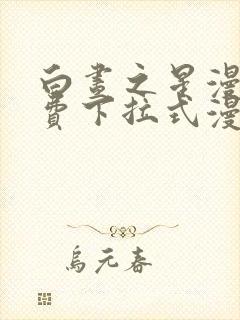 白晝之景漫
費下拉式漫
烏元春